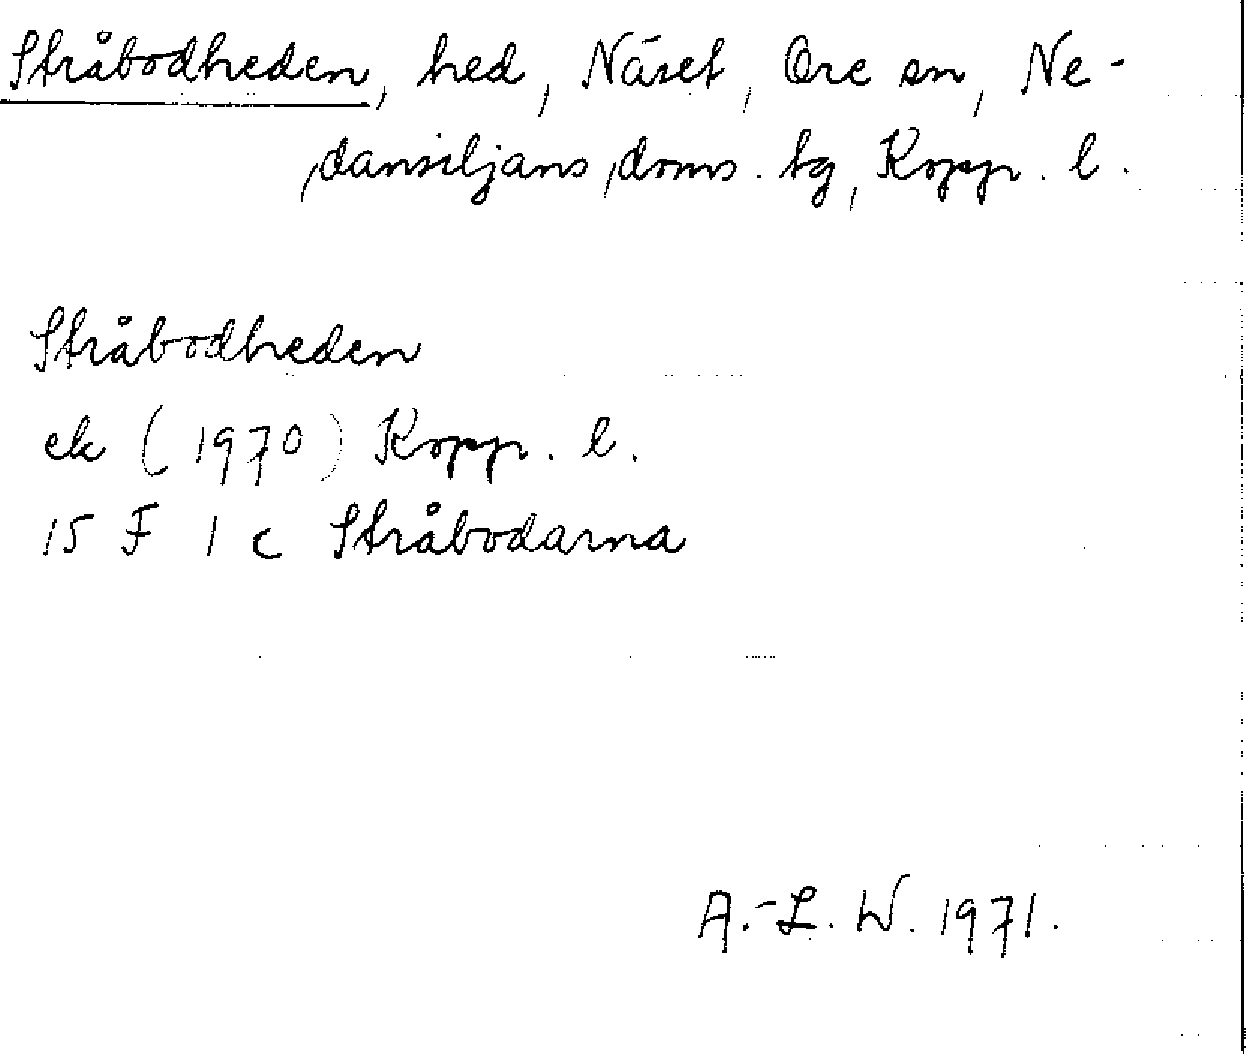 Stråbodheden, hed, Näset, Ore sn, Ne-
dansiljans doms. tg, Kopp. l.
Stråbodheden
ek (1970) Kopp. l.
15 F 1 c Stråbodarna
A.-L. W. 1971.